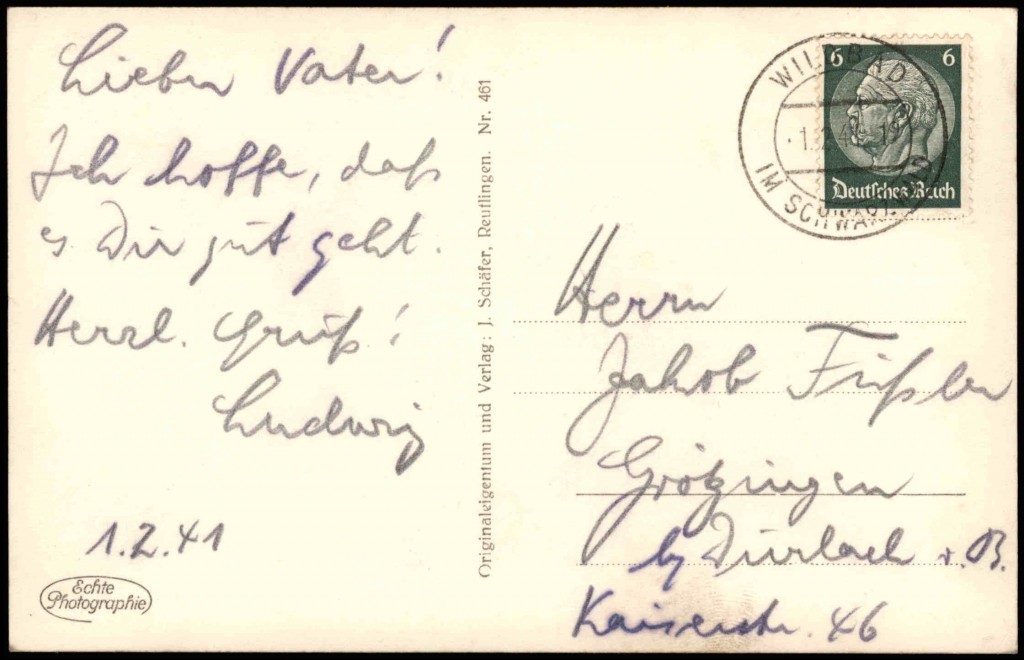 Lieber Vater!
Ich hoffe, daß
es Dir gut geht.
Herzl. Gruß!
Ludwig
1.2.41
Echte
Photographie
Originaleigentum und Verlag: J. Schäfer, Reutlingen. Nr. 461
WILDBAD
IM SCHWARZWALD
6 6
Deutsches Reich
Herrn
Jakob Füßler
Grötzingen
b/ Durlach i. B.
Kaiserstr. 46